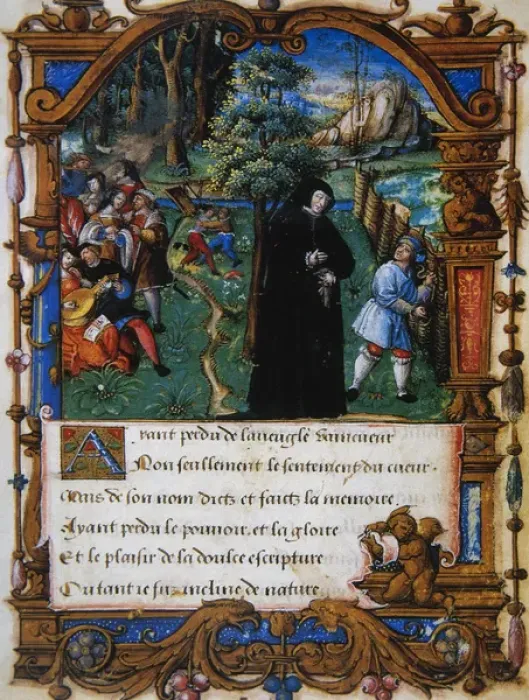 Ayant perdu de laueugle vaincueur
Non seullement le sentement du cueur.
Mais de son nom dictz et faictz la memoire
Ayant perdu le pouuoir, et la gloire
Et le plaisir de la doulce escripture
Ou tant ie fuz incline de nature